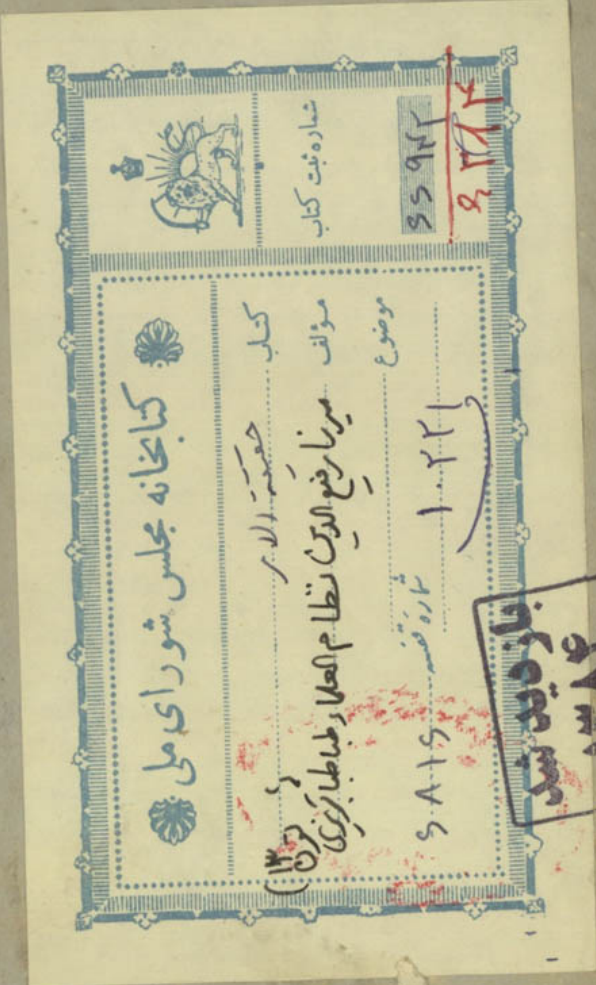 کتابخانه مجلس شورای ملی
کتاب حقیقة الامر
مؤلف میرزا رفیع الدین نظام العلماء طباطبا تبریزی
(قرن ۱۳)
موضوع
شماره قفسه ۱۰۲۲۱
شماره ثبت کتاب
بازدید شد
۱۳۸۴